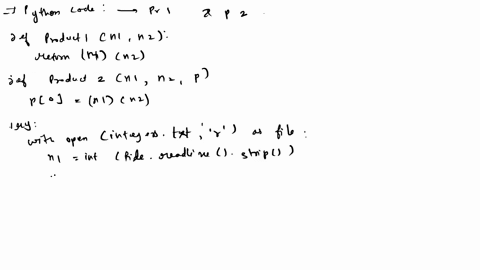 → Python code: → Pr 1 & p 2
def Product1 (n1, n2):
return (n1) (n2)
def Product 2 (n1, n2, p)
p[0] = (n1) (n2)
try:
with open (integers.txt, 'r') as file:
n1 = int (file.readline().strip())